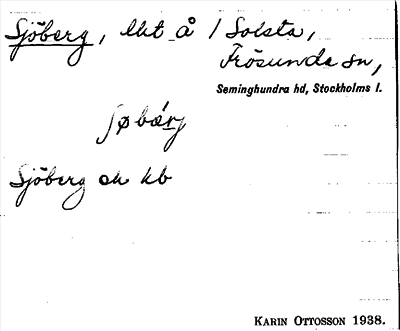 Sjöberg, lht å / Solsta,
Frösunda sn,
Seminghundra hd, Stockholms l.
Sjöberg ch kb
KARIN OTTOSSON 1938.